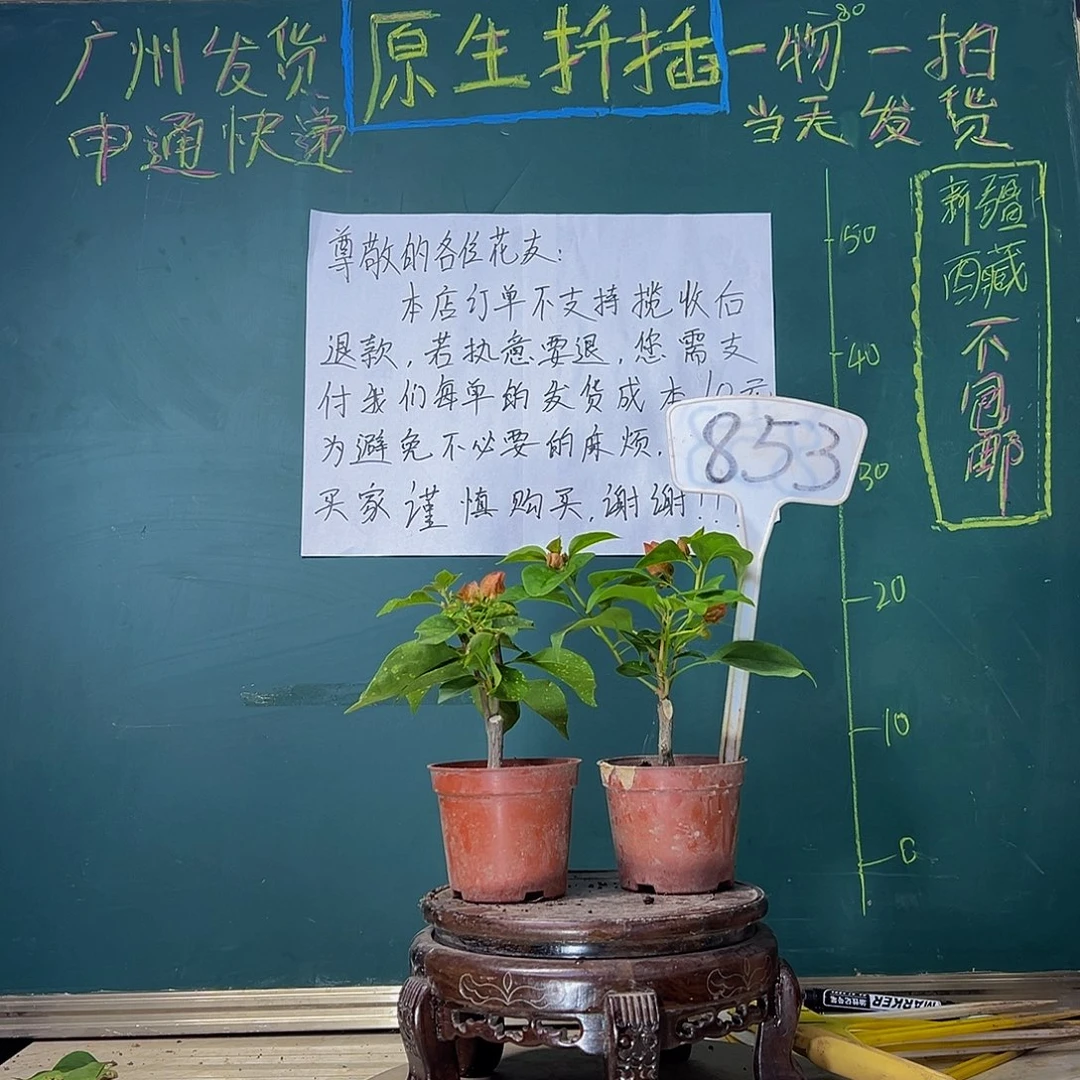 广州发货
申通快递
原生扦插
一物一拍
当天发货
80
尊敬的各位花友:
本店订单不支持揽收后
退款,若执意要退,您需支
付我们每单的发货成本10元
为避免不必要的麻烦,
买家谨慎购买,谢谢!!!
853
50
40
30
20
10
0
新疆
西藏
不
包
邮
MARKER